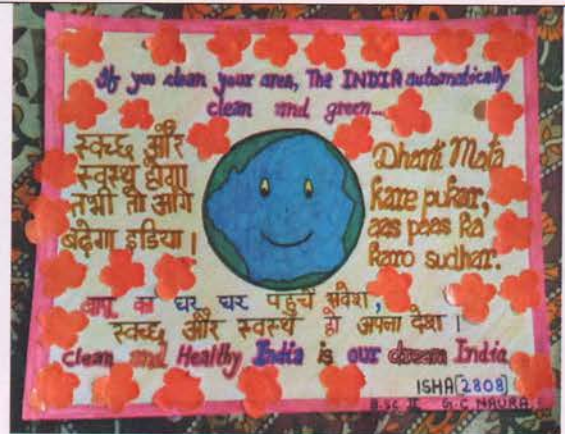 If you clean your area, The INDIA automatically
clean and green...
स्वच्छ और
स्वस्थ होगा
तभी तो आगे
बढ़ेगा इंडिया।
Dharti Mata
kare pukar,
aas paas ka
karo sudhar.
बापू का घर घर पहुंचे संदेश,
स्वच्छ और स्वस्थ हो अपना देश।
Clean and Healthy India is our dream India
ISHA[2808]
B.SC II G.C NAURA